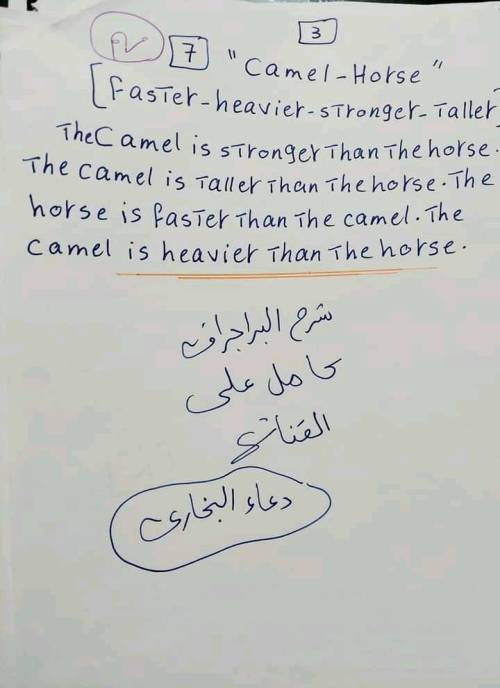 3
م 7 "Camel-Horse"
[Faster-heavier-stronger-Taller]
The Camel is stronger Than The horse.
The camel is Taller Than The horse. The
horse is faster Than The camel. The
camel is heavier Than The horse.
شرح البراجراف
كامل على
القناة
دعاء البخارى